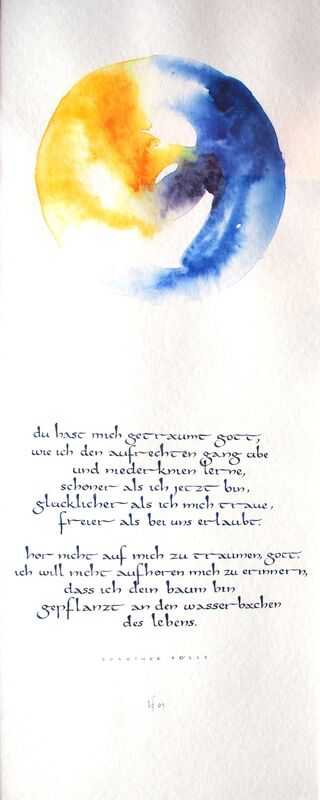 du hast mich geträumt gott,
wie ich den aufrechten gang übe
und niederknien lerne,
schöner als ich jetzt bin,
glücklicher als ich mich traue,
freier als bei uns erlaubt.
hör nicht auf mich zu träumen, gott.
ich will nicht aufhören mich zu erinnern,
dass ich dein baum bin
gepflanzt an den wasserbächen
des lebens.
DOROTHEE SÖLLE